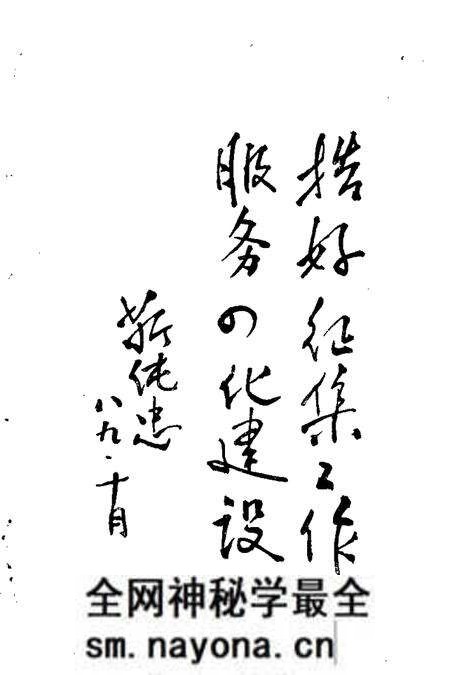 搞好征集工作
服务四化建设
靳纯忠
八九·十月
全网神秘学最全
sm.nayona.cn